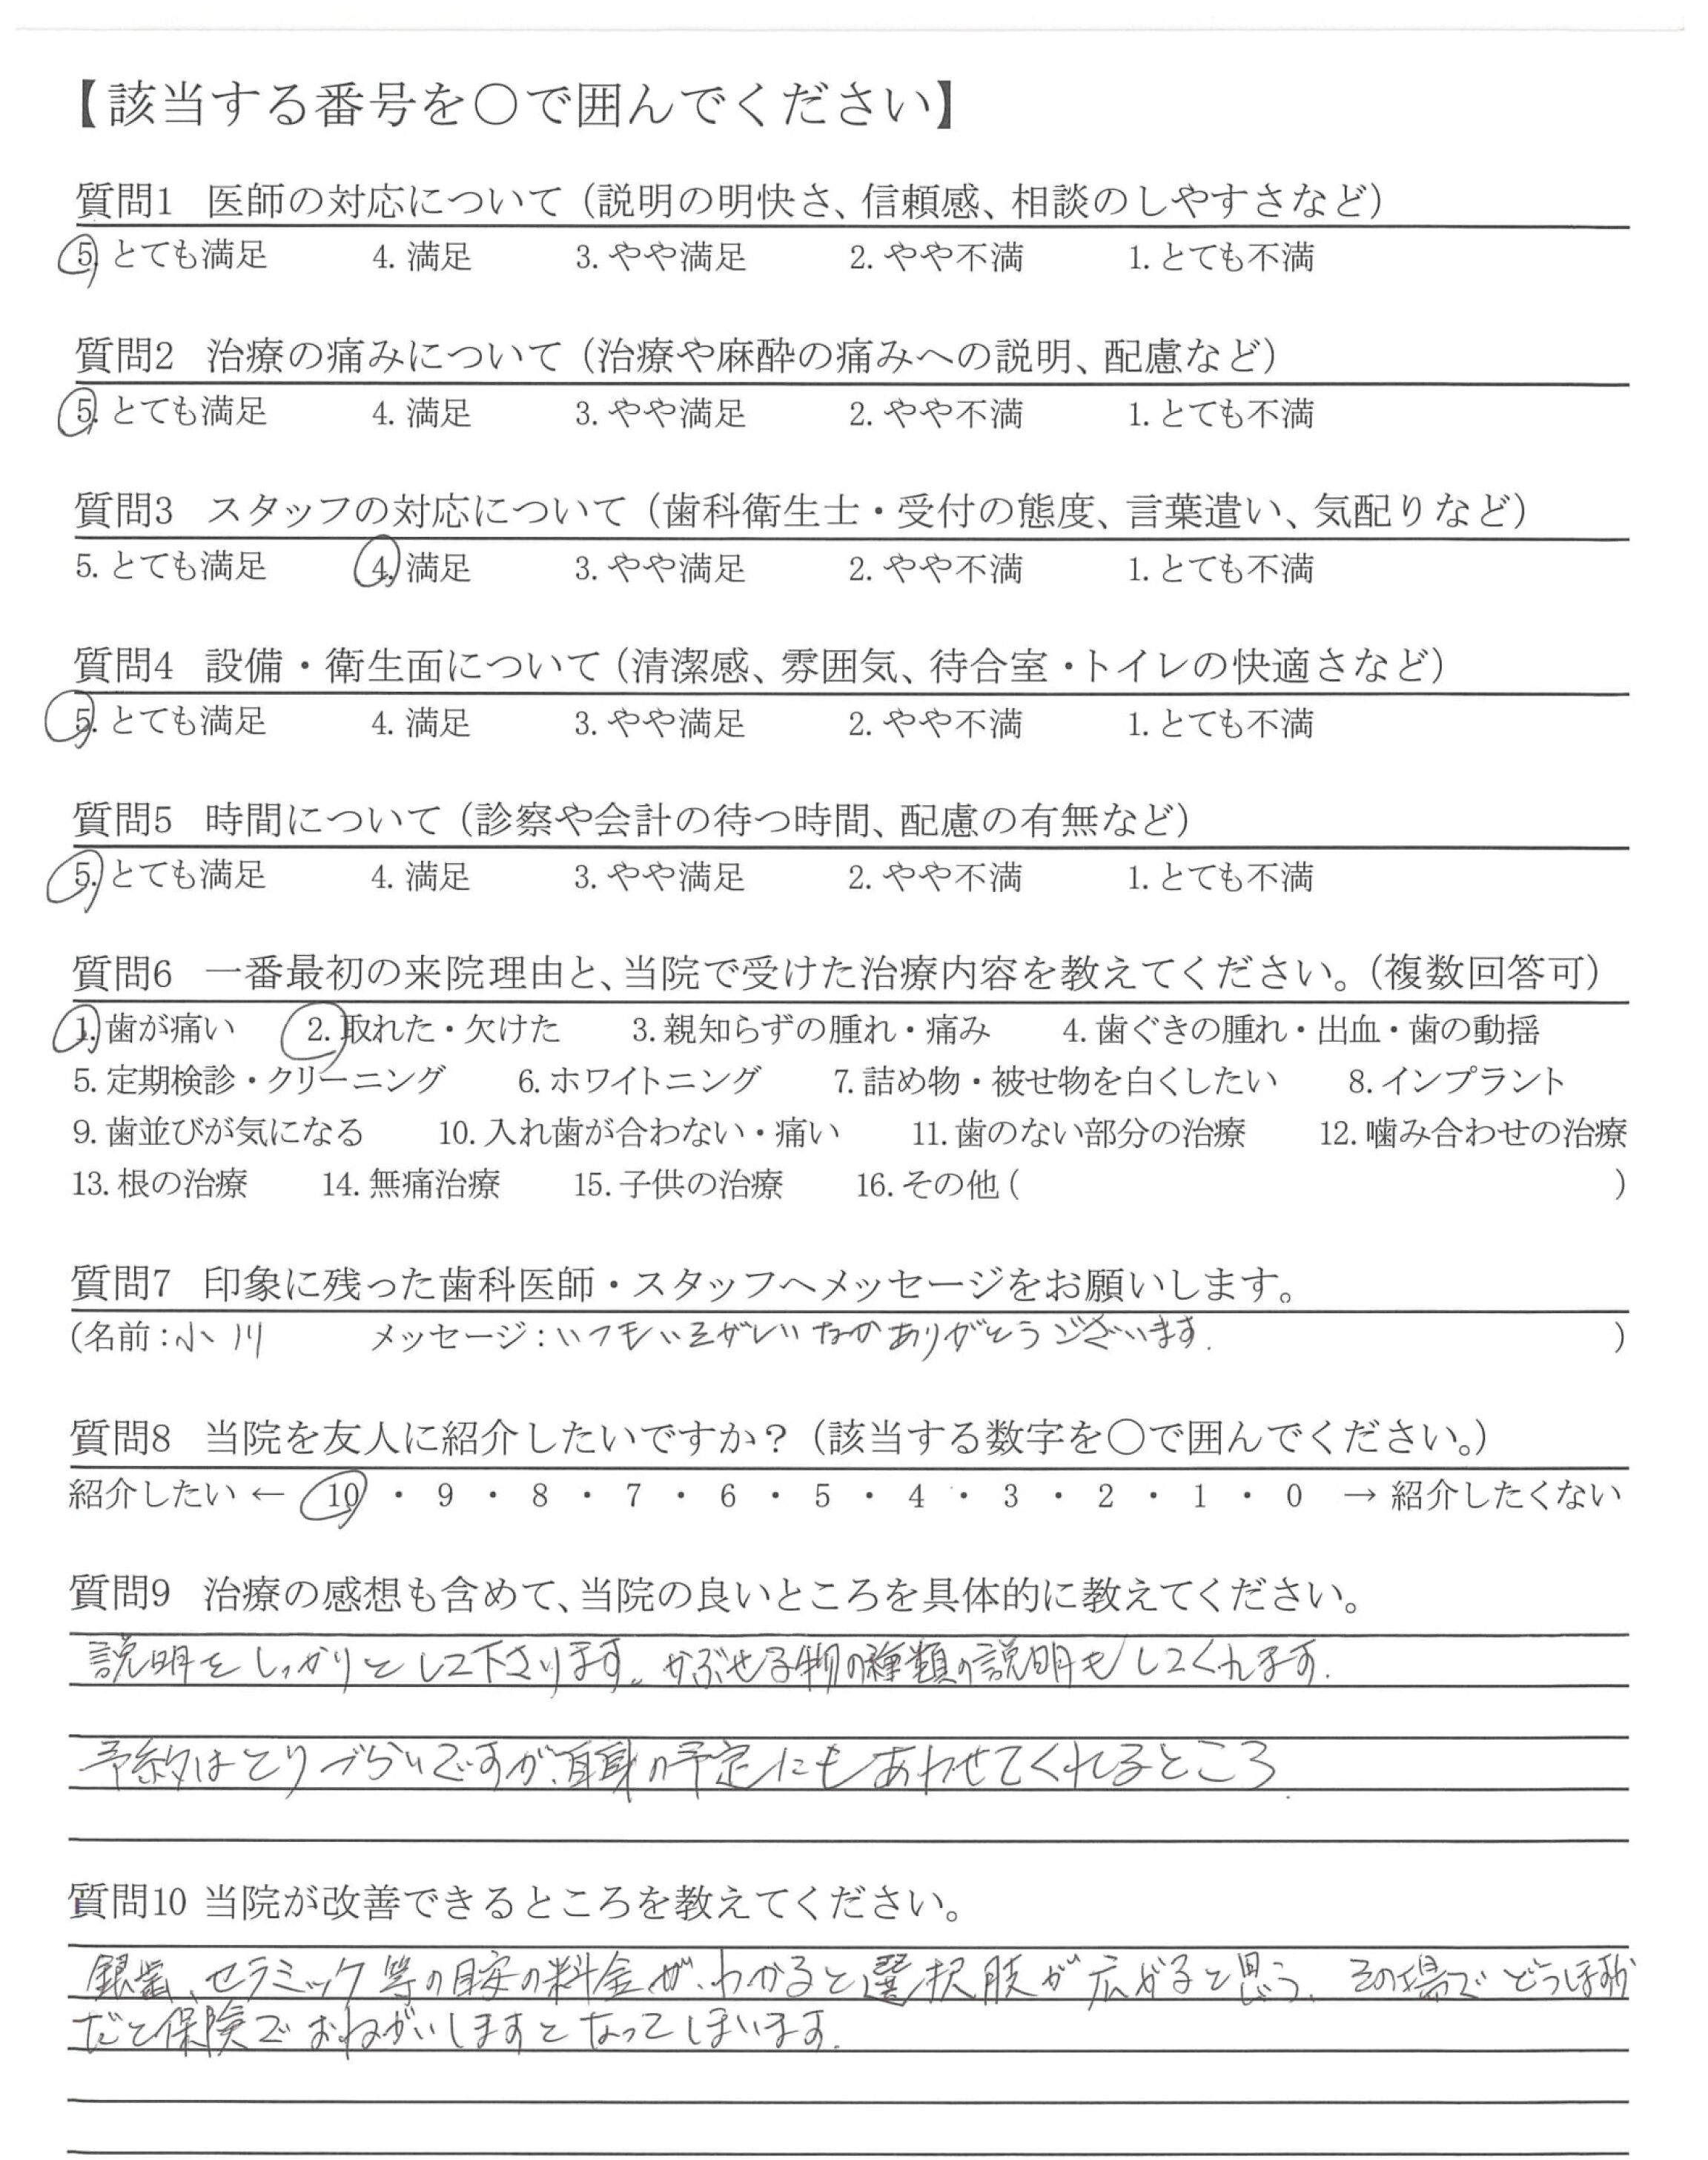 【該当する番号を〇で囲んでください】
質問1 医師の対応について（説明の明快さ、信頼感、相談のしやすさなど）
5. とても満足 4. 満足 3. やや満足 2. やや不満 1. とても不満
質問2 治療の痛みについて（治療や麻酔の痛みへの説明、配慮など）
5. とても満足 4. 満足 3. やや満足 2. やや不満 1. とても不満
質問3 スタッフの対応について（歯科衛生士・受付の態度、言葉遣い、気配りなど）
5. とても満足 4. 満足 3. やや満足 2. やや不満 1. とても不満
質問4 設備・衛生面について（清潔感、雰囲気、待合室・トイレの快適さなど）
5. とても満足 4. 満足 3. やや満足 2. やや不満 1. とても不満
質問5 時間について（診察や会計の待つ時間、配慮の有無など）
5. とても満足 4. 満足 3. やや満足 2. やや不満 1. とても不満
質問6 一番最初の来院理由と、当院で受けた治療内容を教えてください。（複数回答可）
1. 歯が痛い 2. 取れた・欠けた 3. 親知らずの腫れ・痛み 4. 歯ぐきの腫れ・出血・歯の動揺
5. 定期検診・クリーニング 6. ホワイトニング 7. 詰め物・被せ物を白くしたい 8. インプラント
9. 歯並びが気になる 10. 入れ歯が合わない・痛い 11. 歯のない部分の治療 12. 噛み合わせの治療
13. 根の治療 14. 無痛治療 15. 子供の治療 16. その他（ ）
質問7 印象に残った歯科医師・スタッフへメッセージをお願いします。
（名前：小川 メッセージ：いつもいそがしいなかありがとうございます. ）
質問8 当院を友人に紹介したいですか？（該当する数字を〇で囲んでください。）
紹介したい ← 10 ・ 9 ・ 8 ・ 7 ・ 6 ・ 5 ・ 4 ・ 3 ・ 2 ・ 1 ・ 0 → 紹介したくない
質問9 治療の感想も含めて、当院の良いところを具体的に教えてください。
説明をしっかりとして下さります。かぶせる物の種類の説明もしてくれます.
予約はとりづらいですが、自身の予定にもあわせてくれるところ.
質問10 当院が改善できるところを教えてください。
銀歯、セラミック等の目安の料金が、わかると選択肢が広がると思う、その場でどうしますか
だと保険でおねがいしますとなってしまいます.